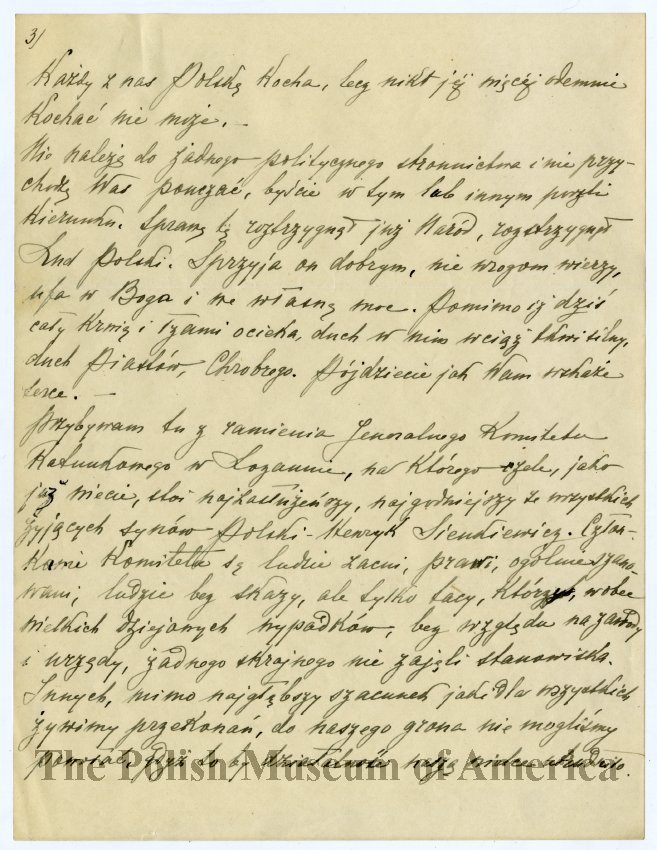 3/
Każdy z nas Polskę Kocha, lecz nikt jej więcej odemnie
Kochać nie może. –
Nie należę do żadnego politycznego stronnictwa i nie przy-
chodzę Was pouczać, byście w tym lub innym poszli
kierunku. Sprawę tę rozstrzygnął już Naród, rozstrzygnął
Lud Polski. Sprzyja on dobrym, nie wrogom wierzy,
ufa w Boga i we własną moc. Pomimo iż dziś
cały krwią i łzami ocieka, duch w nim wciąż tkwi silny,
duch Piastów, Chrobrego. Pójdziecie jak Wam wskaże
serce. –
Przybywam tu z ramienia Generalnego Komitetu
Ratunkowego w Lozannie, na Którego czele, jako
już wiecie, stoi najzasłużeńszy, najgodniejszy ze wszystkich
żyjących synów Polski – Henryk Sienkiewicz. Człon-
kami Komitetu są ludzie zacni, prawi, ogólnie szano-
wani, ludzie bez skazy, ale tylko tacy, Którzy, wobec
wielkich dziejowych wypadków, bez względu na zawody
i urzędy, żadnego skrajnego nie zajęli stanowiska.
Innych, mimo najgłębszy szacunek jaki dla wszystkich
żywimy przekonań, do naszego grona nie mogliśmy
powołać, gdyż to by działalność naszą wielce utrudniło.
The Polish Museum of America